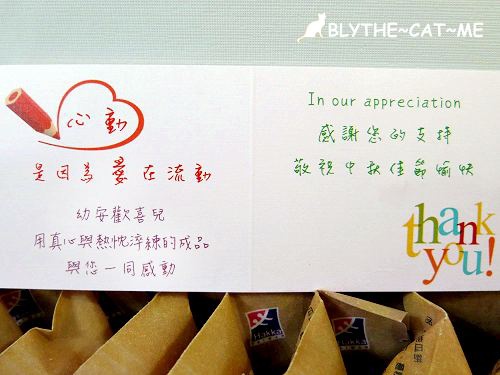 BLYTHE~CAT~ME
心動
是因為愛在流動
幼安歡喜兒
用真心與熱忱淬練的成品
與您一同感動
In our appreciation
感謝您的支持
敬祝中秋佳節愉快
thank
you!
Hakka
Hakka